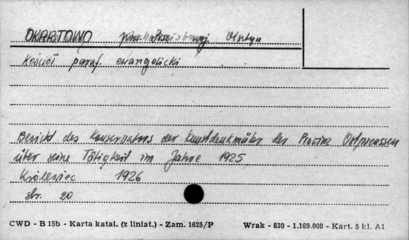 OKARTOWO Olsztyn
Kościół paraf. ewangelicki
Bericht des Konservators der Kunstdenkmäler der Provinz Ostpreussen
über seine Tätigkeit im Jahre 1925
Królewiec 1926
str. 20
CWD - B 15b - Karta katal. (z liniat.) - Zam. 1625/P Wrak - 830 - 1.169.000 - Kart. 5 kl. A1